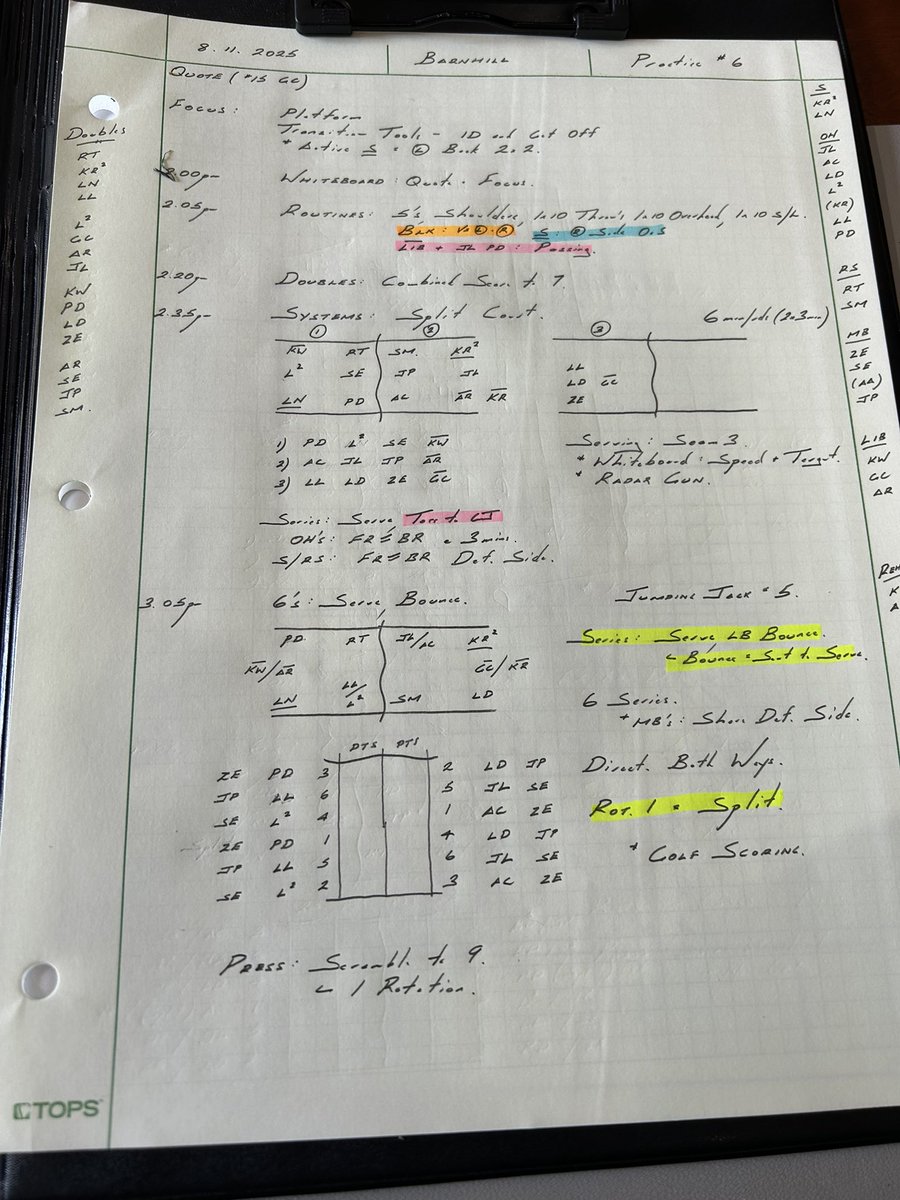 8. 11. 2025 BARNHILL Practice #6
QUOTE (#15 GC)
FOCUS: Platform
Transition Tools - ID and Get Off
* Active S = (L) Back 2 v. 2.
2.00pm WHITEBOARD: Quote + Focus.
2.05pm ROUTINES: S's, Shoulders, 1n10 Throws 1n10 Overhead, 1n10 S/L.
BLK: vs (L) + (R) S: (R) Side O.S
LIB + JL PD: Passing.
2.20pm DOUBLES: Combined Score to 7.
2.35pm SYSTEMS: Split Court. 6 min/side (2 x 3min)
1 2 3
KW RT SM. KR²
L² SE JP JL
LN PD AC AR KR
LL
LD GC
ZE
1) PD L² SE KW
2) AC JL JP AR
3) LL LD ZE GC
Serving: Seam 3.
* Whiteboard: Speed + Target.
* RADAR GUN.
Series: Serve, Toss to LJ
OH's: FR ⇄ BR @ 3 mins.
S/RS: FR ⇄ BR Def. Side.
3.05pm 6's: Serve, Bounce. JUMPING JACK #5.
PD RT JL/AC KR²
KW/AR GC/KR
LN LL/L² SM LD
Series: Serve LB Bounce.
↳ Bounce = Sent to Serve.
6 Series.
* MB's: Share Def. Side.
Direct. Both Ways.
ROT. 1 = Split.
* GOLF SCORING.
PTS PTS
ZE PD 3 2 LD JP
JP LL 6 5 JL SE
SE L² 4 1 AC ZE
ZE PD 1 4 LD JP
JP LL 5 6 JL SE
SE L² 2 3 AC ZE
PRESS: Scramble to 9.
↳ 1 Rotation.
Doubles
RT
KR²
LN
LL
L²
GC
AR
JL
KW
PD
LD
ZE
AR
SE
JP
SM.
S
KR²
LN
OH
JL
AC
LD
L²
(KR)
LL
PD
RS
RT
SM
MB
ZE
SE
(AA)
JP
LIB
KW
GC
AR
TOPS